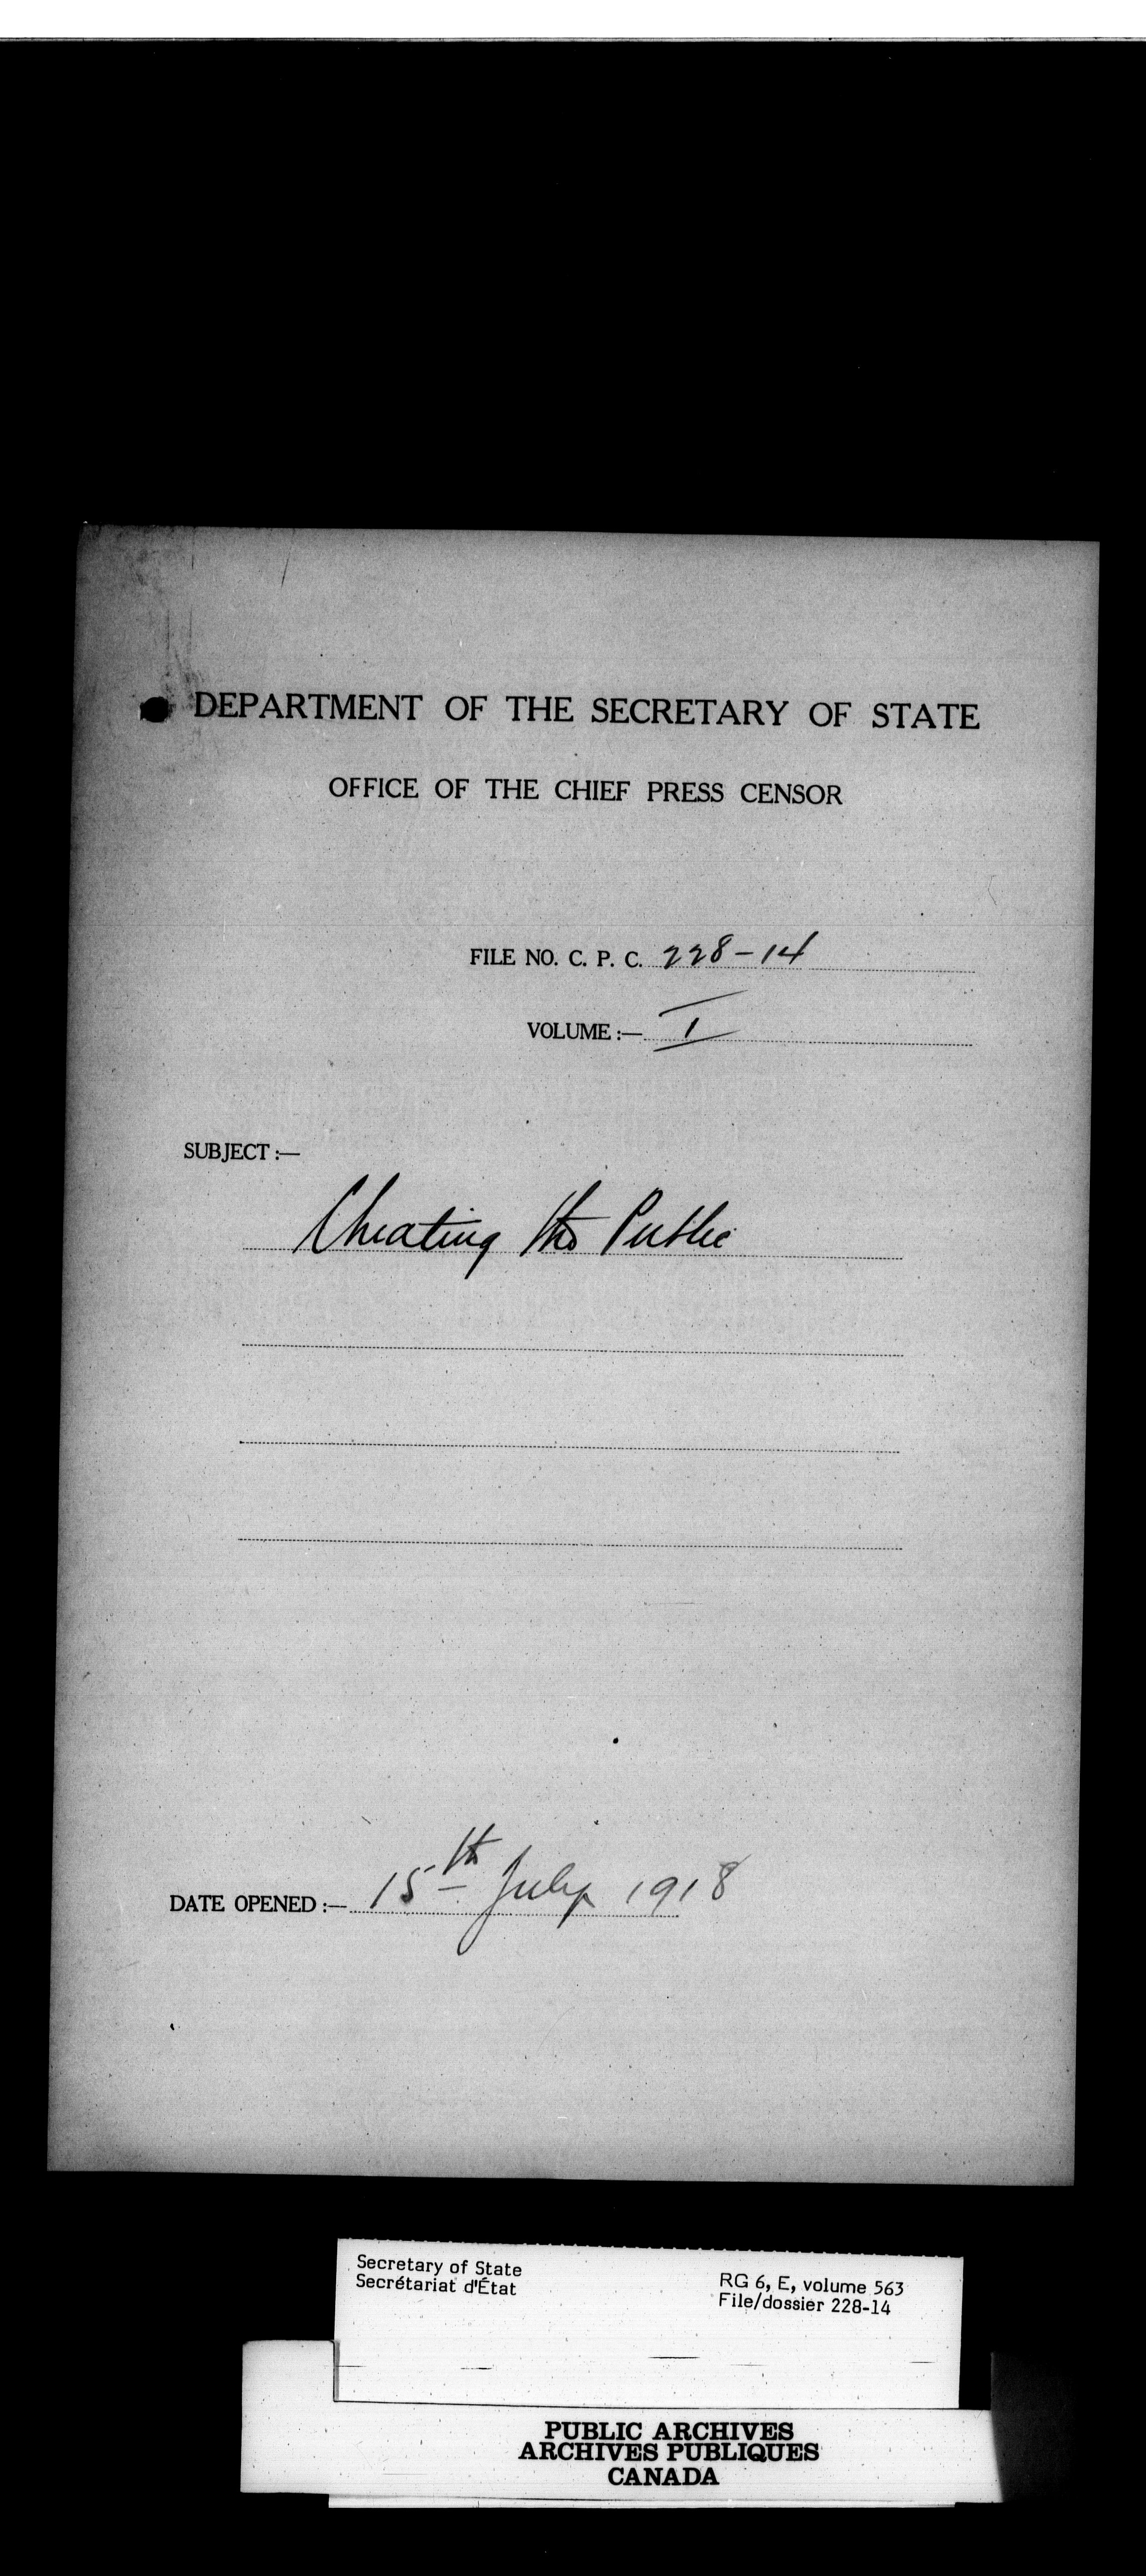 DEPARTMENT OF THE SECRETARY OF STATE
OFFICE OF THE CHIEF PRESS CENSOR
FILE NO. C. P. C. 228-14
VOLUME :— I
SUBJECT :—
Cheating the Public
DATE OPENED :— 15th July 1918
Secretary of State
Secrétariat d'État
RG 6, E, volume 563
File/dossier 228-14
PUBLIC ARCHIVES
ARCHIVES PUBLIQUES
CANADA